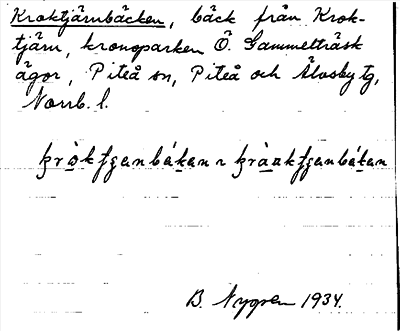 Kroktjärnbäcken, bäck från Krok-
tjärn, kronoparken Ö. Sammelträsk
ägor, Piteå sn, Piteå och Älvsby tg,
Norrb. l.
B. Nygren 1934.